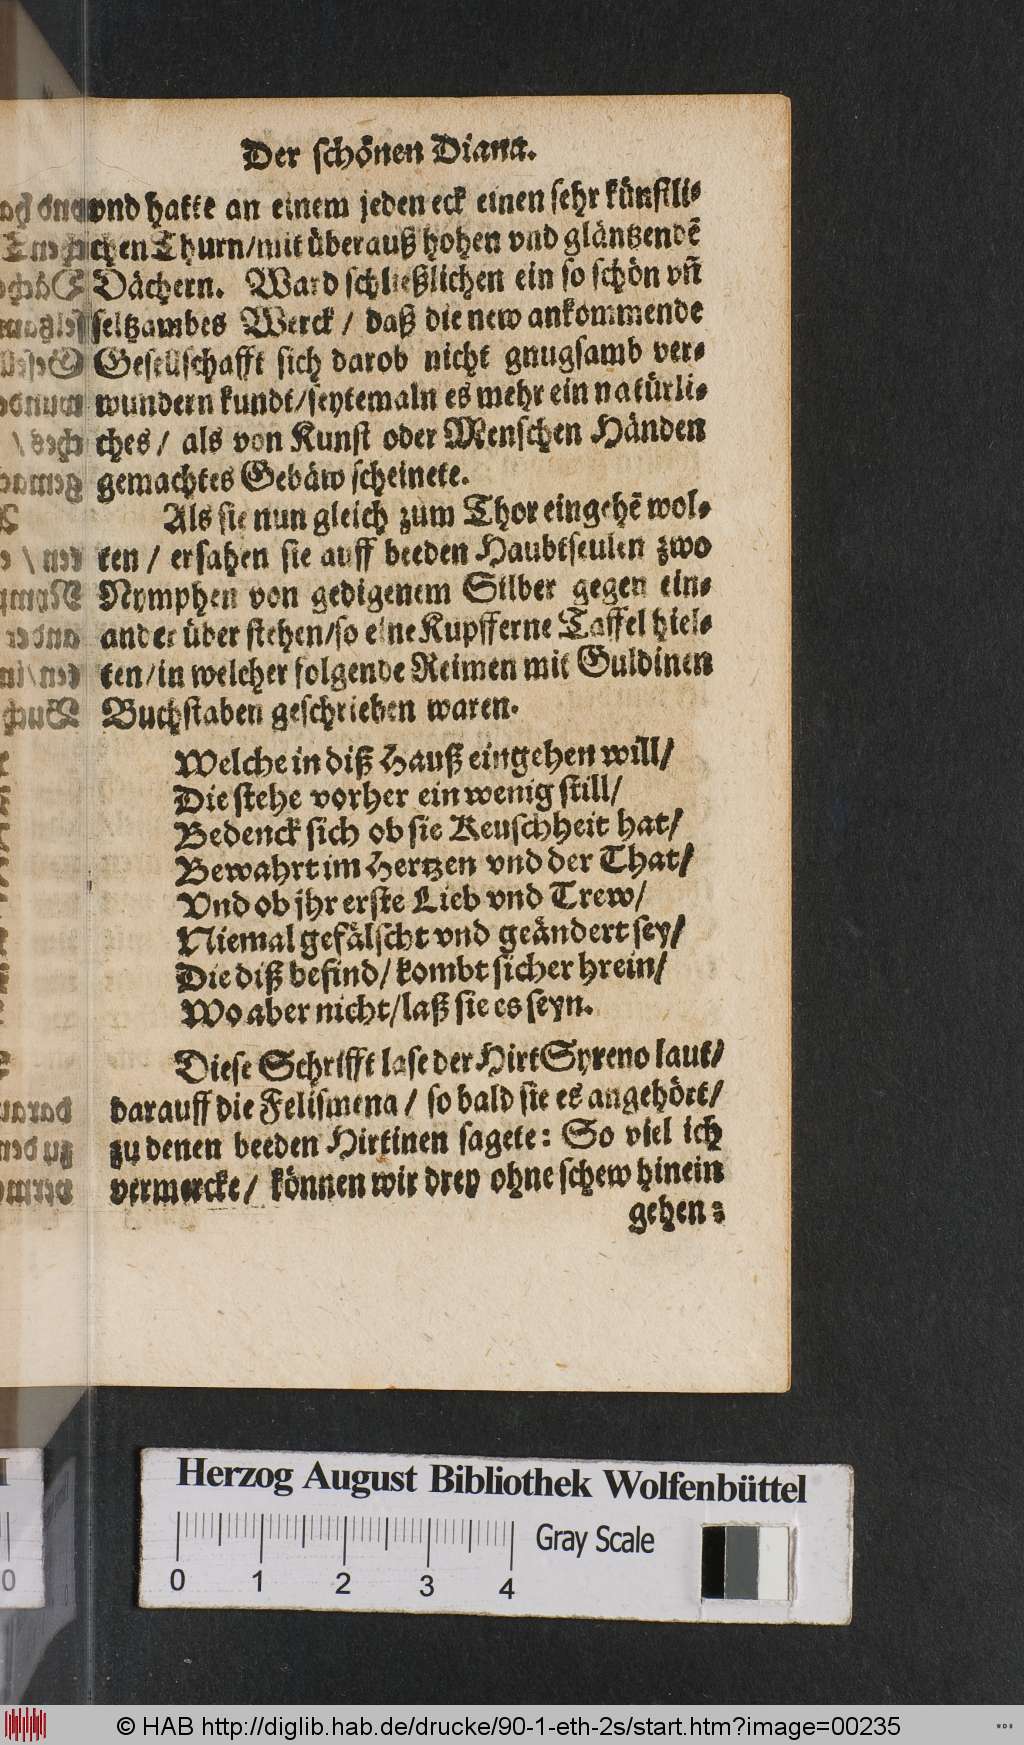 Der schönen Diana.
vnd hatte an einem jeden eck einen sehr künstli-
chen Thurn/mit überauß hohen vnd gläntzendē
Dächern. Ward schließlichen ein so schön vñ
seltzambes Werck / daß die new ankommende
Gesellschafft sich darob nicht gnugsamb ver-
wundern kundt/seytemaln es mehr ein natürli-
ches / als von Kunst oder Menschen Händen
gemachtes Gebäw scheinete.
Als sie nun gleich zum Thor eingehē wol-
ten / ersahen sie auff beeden Haubtseulen zwo
Nymphen von gedigenem Silber gegen ein-
ander über stehen/so eine Kupfferne Taffel hiel-
ten/in welcher folgende Reimen mit Guldinen
Buchstaben geschrieben waren.
Welche in diß Hauß eingehen will/
Die stehe vorher ein wenig still/
Bedenck sich ob sie Keuschheit hat/
Bewahrt im Hertzen vnd der That/
Vnd ob jhr erste Lieb vnd Trew/
Niemal gefälscht vnd geändert sey/
Die diß befind/ kombt sicher hrein/
Wo aber nicht/laß sie es seyn.
Diese Schrifft lase der Hirt Syreno laut/
darauff die Felismena / so bald sie es angehört/
zu denen beeden Hirtinen sagete: So viel ich
vermercke/ können wir drey ohne schew hinein
gehen:
Herzog August Bibliothek Wolfenbüttel
Gray Scale
0 1 2 3 4
© HAB http://diglib.hab.de/drucke/90-1-eth-2s/start.htm?image=00235